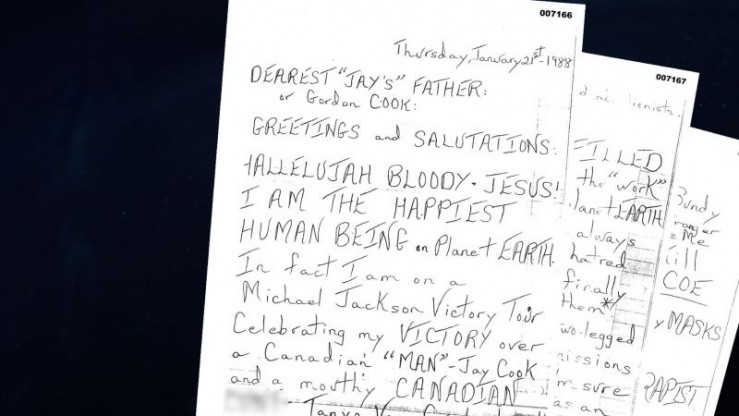 007166
Thursday, January 21st-1988
DEAREST "JAY'S" FATHER:
or Gordon COOK:
GREETINGS and SALUTATIONS:
HALLELUJAH BLOODY-JESUS!
I AM THE HAPPIEST
HUMAN BEING on Planet EARTH.
In fact I am on a
Michael Jackson Victory Tour
Celebrating my VICTORY over
a Canadian "MAN"-Jay Cook
and a mouthy CANADIAN
007167
FILLED
the "work"
EARTH
always
hatred
finally
them*
legged
sure
as an
Me
COE
MASKS
RAPIST